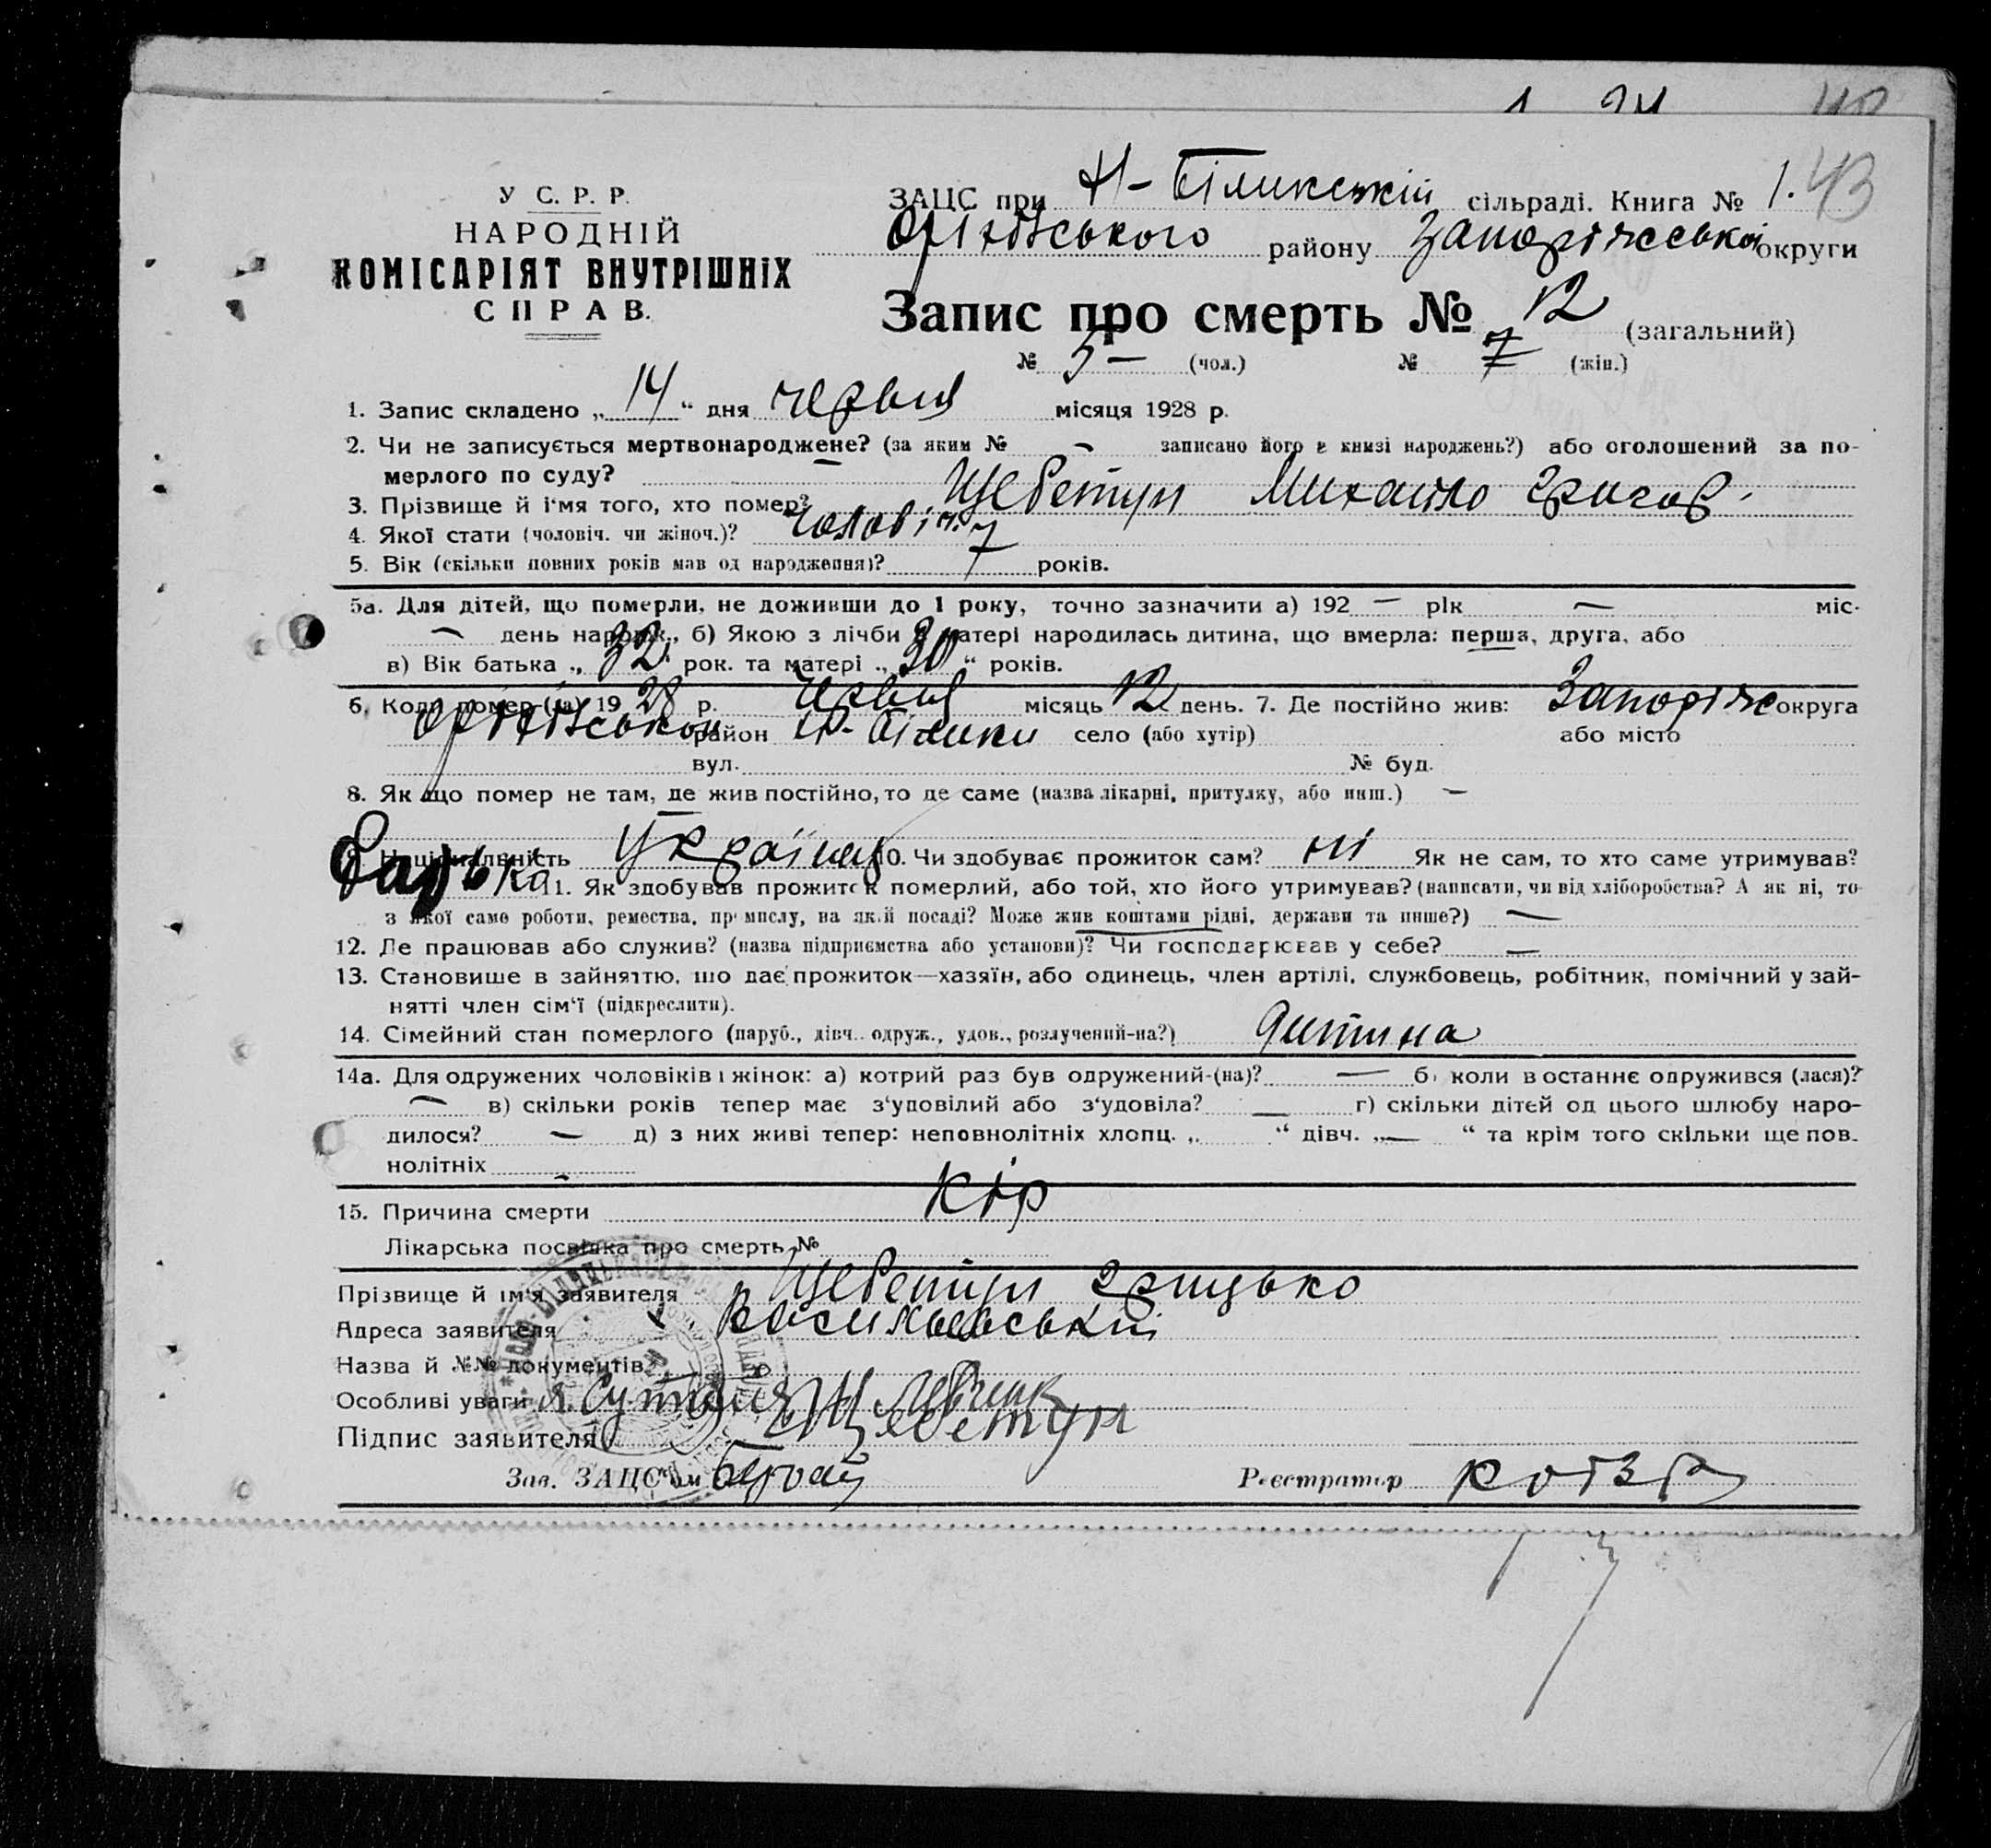 43
У С. Р. Р.
НАРОДНІЙ
КОМІСАРІЯТ ВНУТРІШНІХ
СПРАВ.
ЗАЦС при Н-Біликській сільраді. Книга № 1.
Оріхівського району Запоріжської округи
Запис про смерть № 12 (загальний)
№ 5 — (чол.) № 7 (жін.)
1. Запис складено „ 14 “ дня червня місяця 1928 р.
2. Чи не записується мертвонароджене? (за яким № — записано його в книзі народжень?) або оголошений за по-
мерлого по суду?
3. Прізвище й і‘мя того, хто помер? Щебетун Михайло Григор.
4. Якої стати (чоловіч. чи жіноч.)? чоловіч.
5. Вік (скільки повних років мав од народження)? 7 років.
5а. Для дітей, що померли, не доживши до 1 року, точно зазначити а) 192 — рік — міс.
— день народж., б) Якою з лічби у матері народилась дитина, що вмерла: перша, друга, або
в) Вік батька „ 32 “ рок. та матері „ 30 “ років.
6. Коли помер (ла) 19 28 р. червня місяць 12 день. 7. Де постійно жив: Запоріж округа
Оріхівськой район Н-Білики село (або хутір) або місто
вул. № буд.
8. Як що помер не там, де жив постійно, то де саме (назва лікарні, притулку, або инш.) —
9. Національність Україн 10. Чи здобуває прожиток сам? ні Як не сам, то хто саме утримував?
батько 11. Як здобував прожиток померлий, або той, хто його утримував? (написати, чи від хліборобства? А як ні, то
з якої саме роботи, ремества, промислу, на якій посаді? Може жив коштами рідні, держави та инше?) —
12. Де працював або служив? (назва підприємства або установи)? Чи господарював у себе? —
13. Становише в зайняттю, що дає прожиток—хазяїн, або одинець, член артілі, службовець, робітник, помічний у зай-
нятті член сім‘ї (підкреслити).
14. Сімейний стан померлого (паруб., дівч. одруж., удов., розлучений-на?) дитина
14а. Для одружених чоловіків і жінок: а) котрий раз був одружений-(на)? — б) коли в останнє одружився (лася)?
— в) скільки років тепер має з‘удовілий або з‘удовіла? — г) скільки дітей од цього шлюбу наро-
дилося? — д) з них живі тепер: неповнолітніх хлопц. „ “ дівч. „— “ та крім того скільки ще пов-
нолітніх —
15. Причина смерти кір
Лікарська посвідка про смерть №
Прізвище й ім‘я заявителя Щебетун Грицько
Адреса заявителя
Назва й №№ документів
Особливі уваги
Підпис заявителя Щебетун
Зав. ЗАЦС‘ом
Реєстратор